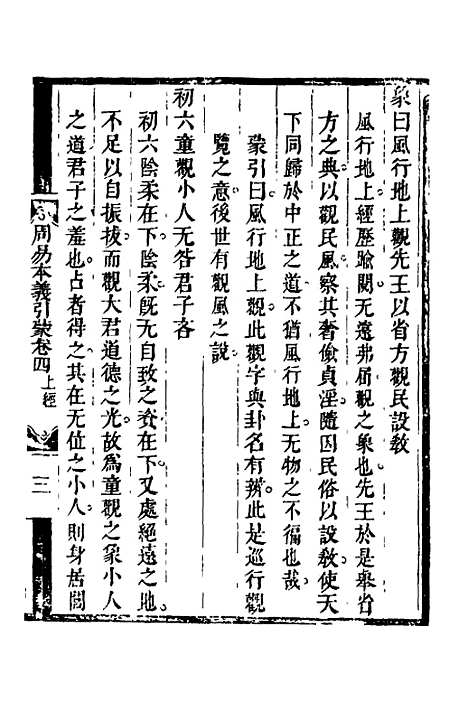 象曰風行地上觀先王以省方觀民設敎
風行地上經歷踰閱无遠弗屆觀之象也先王於是舉省
方之典以觀民風察其奢儉貞淫隨因民俗以設敎使天
下同歸於中正之道不猶風行地上无物之不徧也哉
蒙引曰風行地上觀此觀字與卦名有辨此是巡行觀
覽之意後世有觀風之說
初六童觀小人无咎君子吝
初六陰柔在下陰柔旣无自致之資在下又處絕遠之地
不足以自振拔而觀大君道德之光故爲童觀之象小人
之道君子之羞也占者得之其在无位之小人則身居閭
周易本義引蒙卷四 上經
三